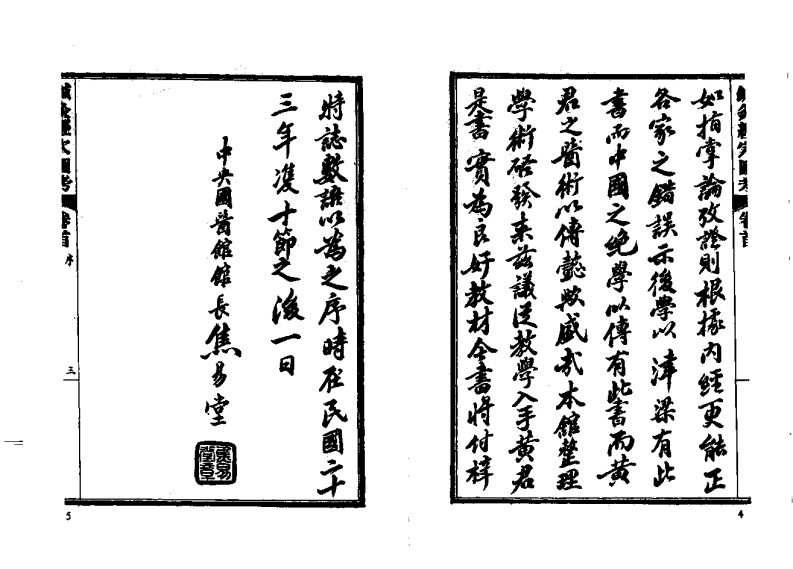 如指掌論攷證則根據內經更能正
各家之錯誤示後學以津梁有此
書而中國之絕學以傳有此書而黃
君之醫術以傳懿歟盛哉本館整理
學術啓發來茲議從教學入手黃君
是書實為良好教材今書將付梓
卷首
4
特誌數語以為之序時在民國二十
三年雙十節之後一日
中央國醫館館長焦易堂
焦易堂章
鍼灸經穴圖考
卷首
序
三
5